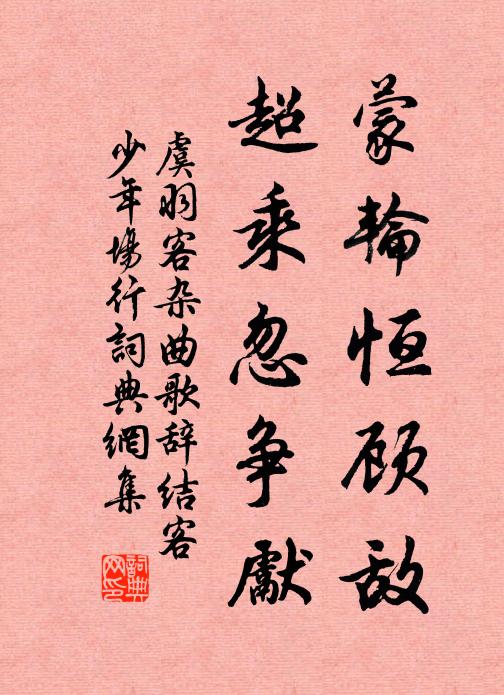 蒙輪恒顾敌
超乘忽争獻
虞羽客杂曲歌辞结客
少年場行詞典網集
詞典
网印